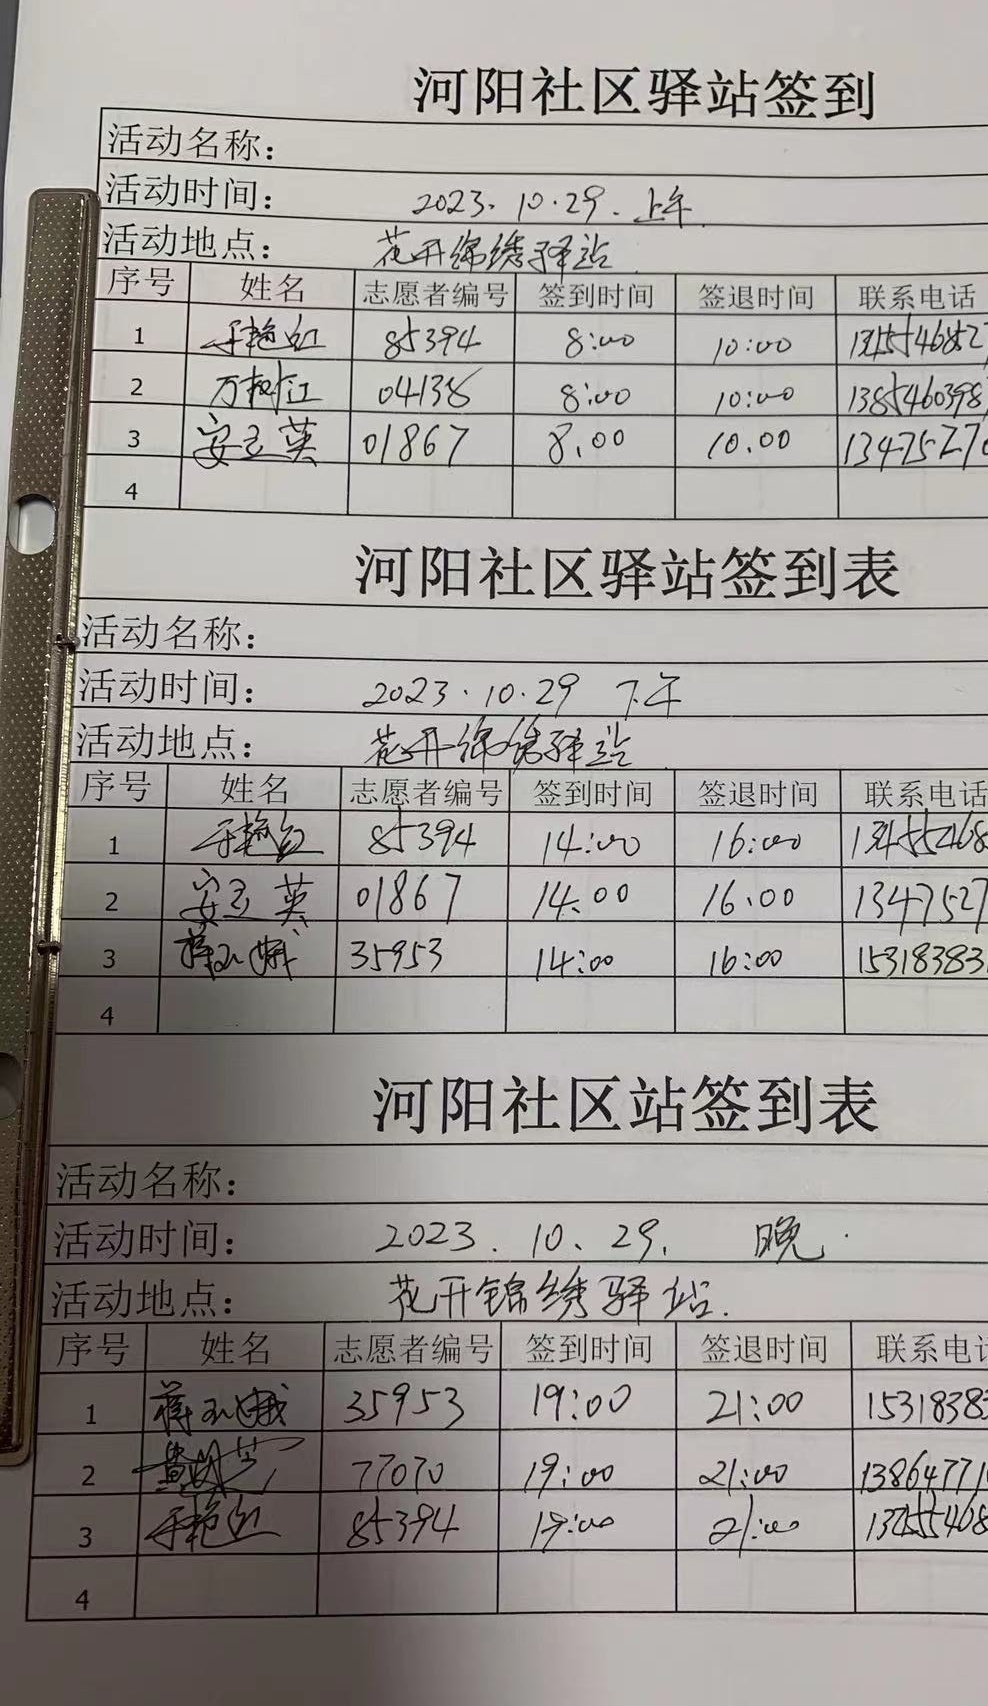 河阳社区驿站签到
活动名称：
活动时间： 2023.10.29.上午
活动地点： 花开锦绣驿站
序号 姓名 志愿者编号 签到时间 签退时间 联系电话
1 于艳红 85394 8:00 10:00
2 04138 8:00 10:00 1385460398
3 安立英 01867 8.00 10.00 1347527
4
河阳社区驿站签到表
活动名称：
活动时间： 2023.10.29 下午
活动地点： 花开锦绣驿站
序号 姓名 志愿者编号 签到时间 签退时间 联系电话
1 于艳红 85394 14:00 16:00
2 安立英 01867 14.00 16.00 1347527
3 35953 14:00 16:00 15318383
4
河阳社区站签到表
活动名称：
活动时间： 2023.10、29, 晚.
活动地点： 花开锦绣驿站.
序号 姓名 志愿者编号 签到时间 签退时间 联系电
1 35953 19:00 21:00 1531838
2 77070 19:00 21:00 13864771
3 于艳红 85394 19:00 21:00
4